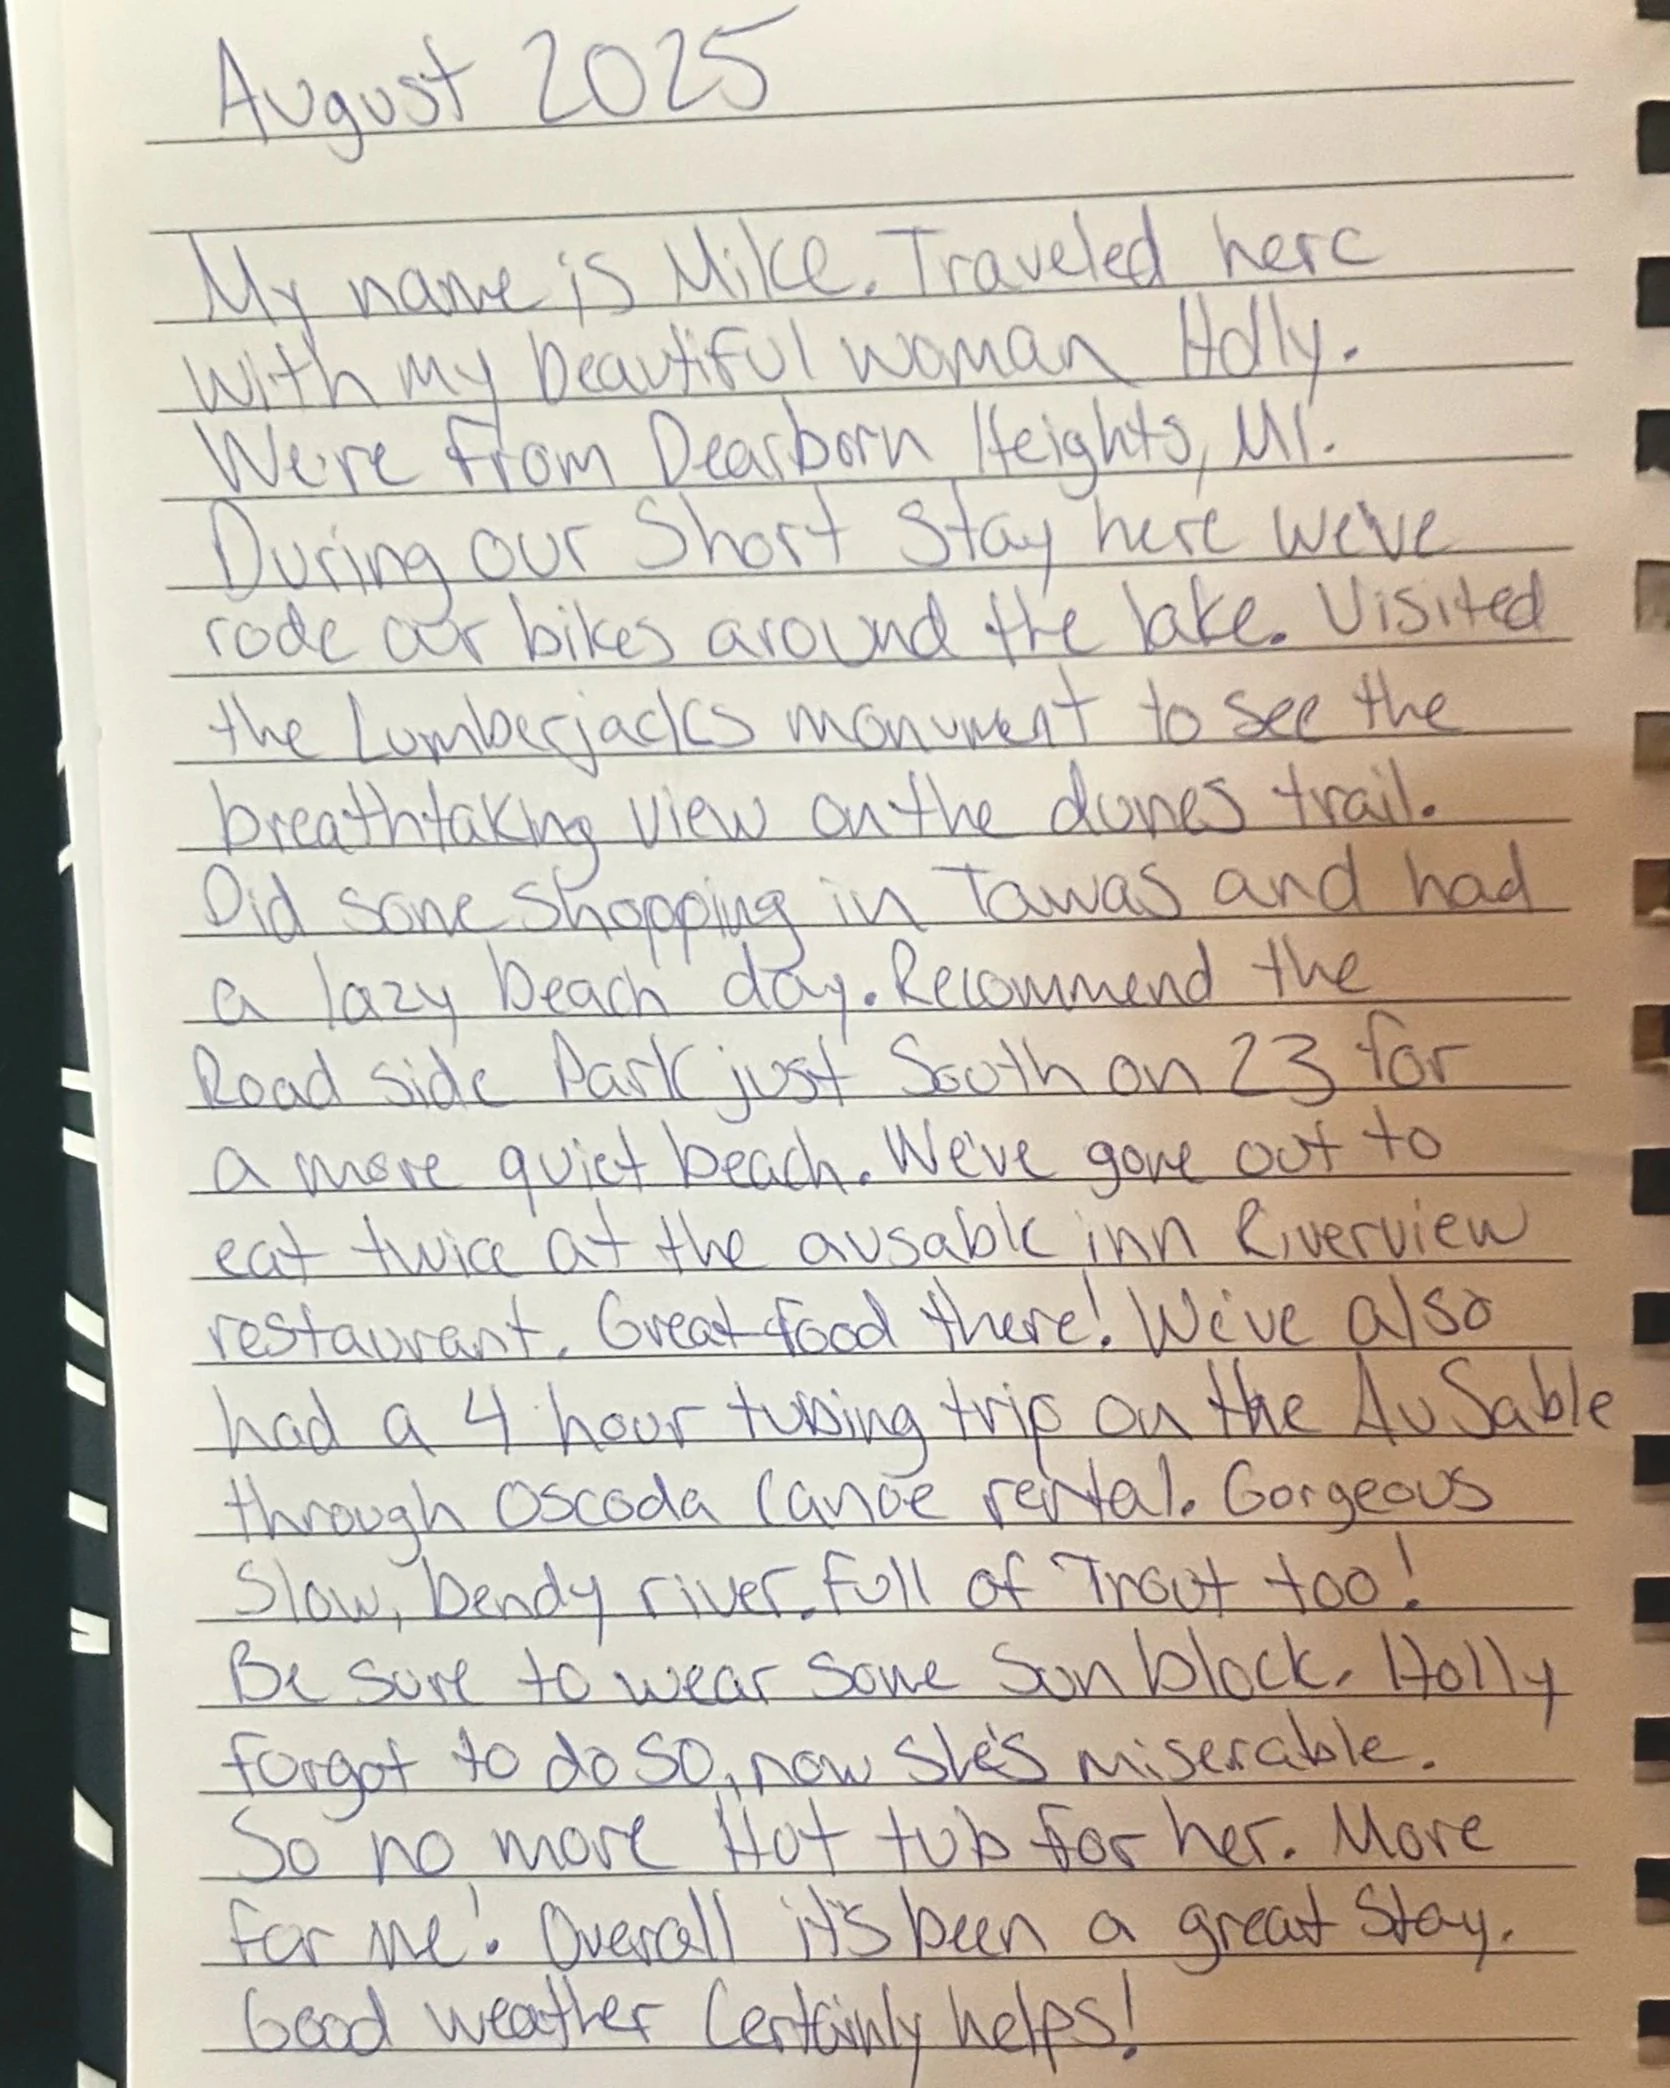 August 2025
My name is Mike. Traveled here
with my beautiful woman Holly.
We're from Dearborn Heights, MI.
During our Short Stay here we've
rode our bikes around the lake. Visited
the Lumberjacks monument to see the
breathtaking view on the dunes trail.
Did some shopping in Tawas and had
a lazy beach day. Recommend the
Road side Park just South on 23 for
a more quiet beach. We've gone out to
eat twice at the ausable inn Riverview
restaurant. Great food there! We've also
had a 4 hour tubing trip on the AuSable
through Oscoda Canoe rental. Gorgeous
Slow, bendy river. Full of Trout too!
Be sure to wear some Sun block. Holly
forgot to do so, now she's miserable.
So no more Hot tub for her. More
for me! Overall it's been a great Stay.
Good weather Certainly helps!